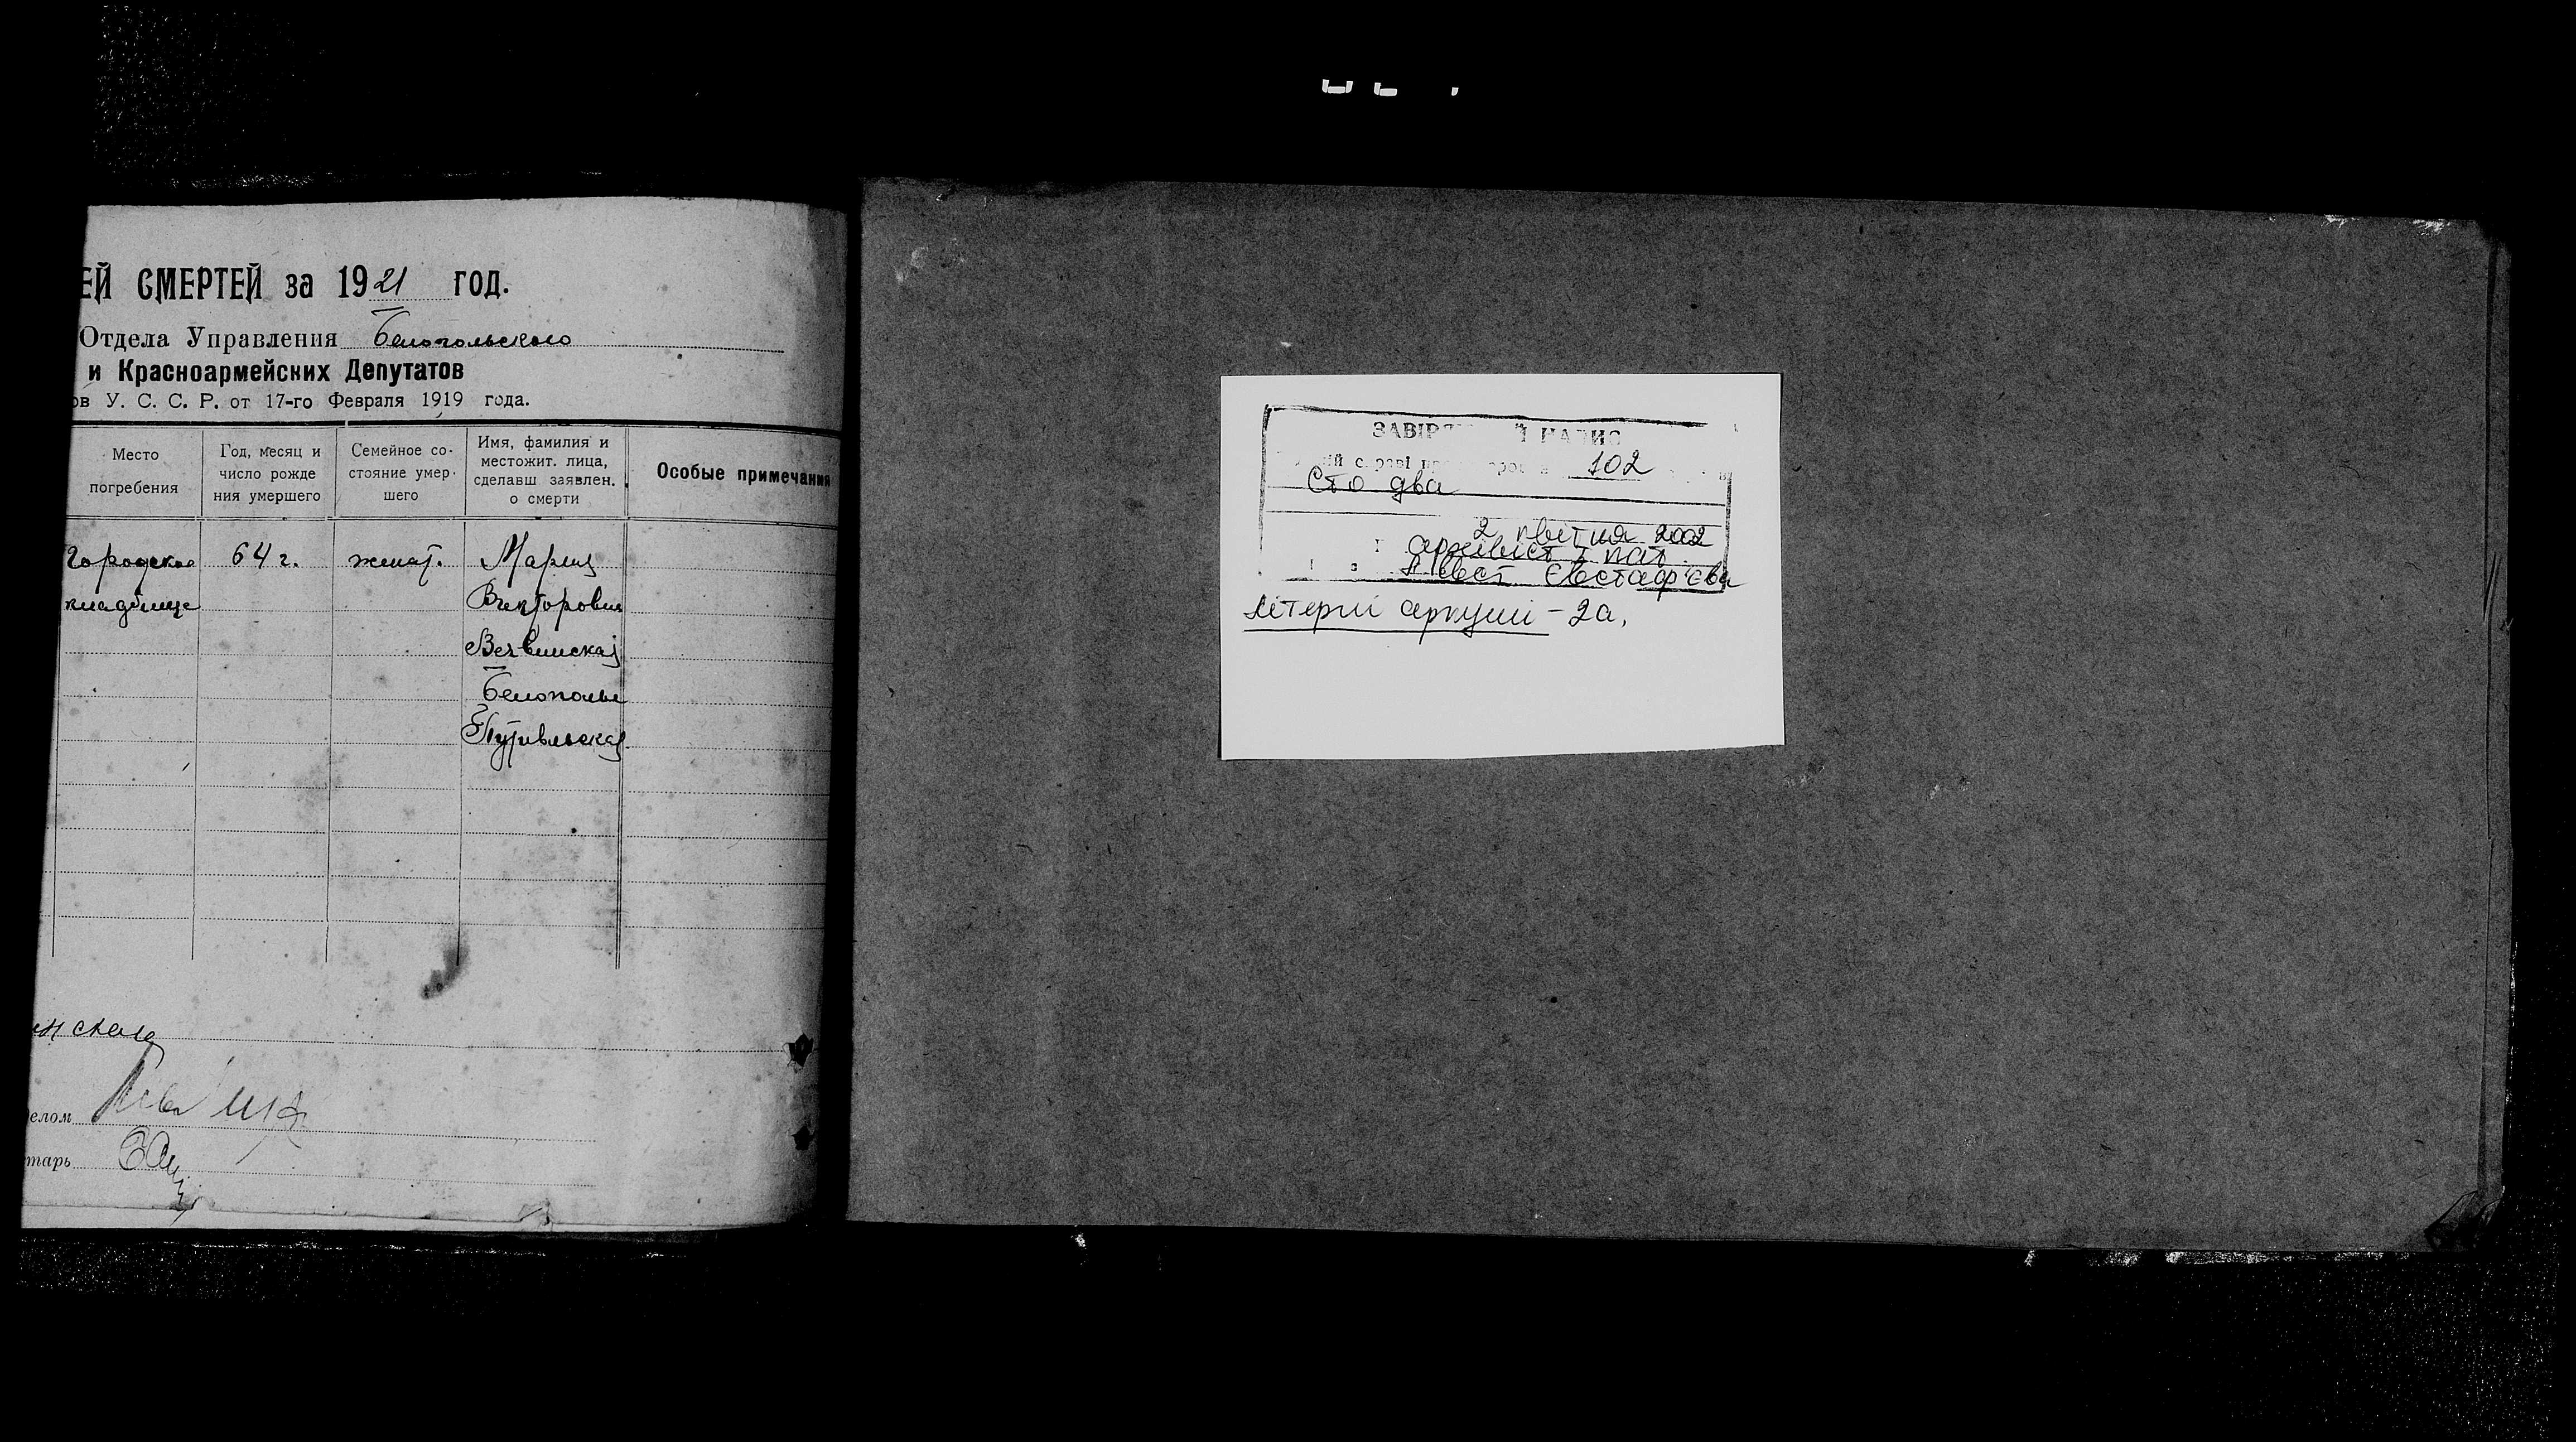 ЕЙ СМЕРТЕЙ за 1921 год.
Отдела Управления Белопольского
и Красноармейских Депутатов
ов У. С. С. Р. от 17-го Февраля 1919 года.
Место погребения
Год, месяц и число рожде ния умершего
Семейное со- стояние умер- шего
Имя, фамилия и местожит. лица, сделавш заявлен. о смерти
Особые примечания
Городское 64 г. женат. Мария
кладбище Викторовна
Белополье
Путивльская
елом
тарь
102
Сто два
2 квітня 2002
архівіст І кат
Євстаф'єва
літерні аркуші – 2а,